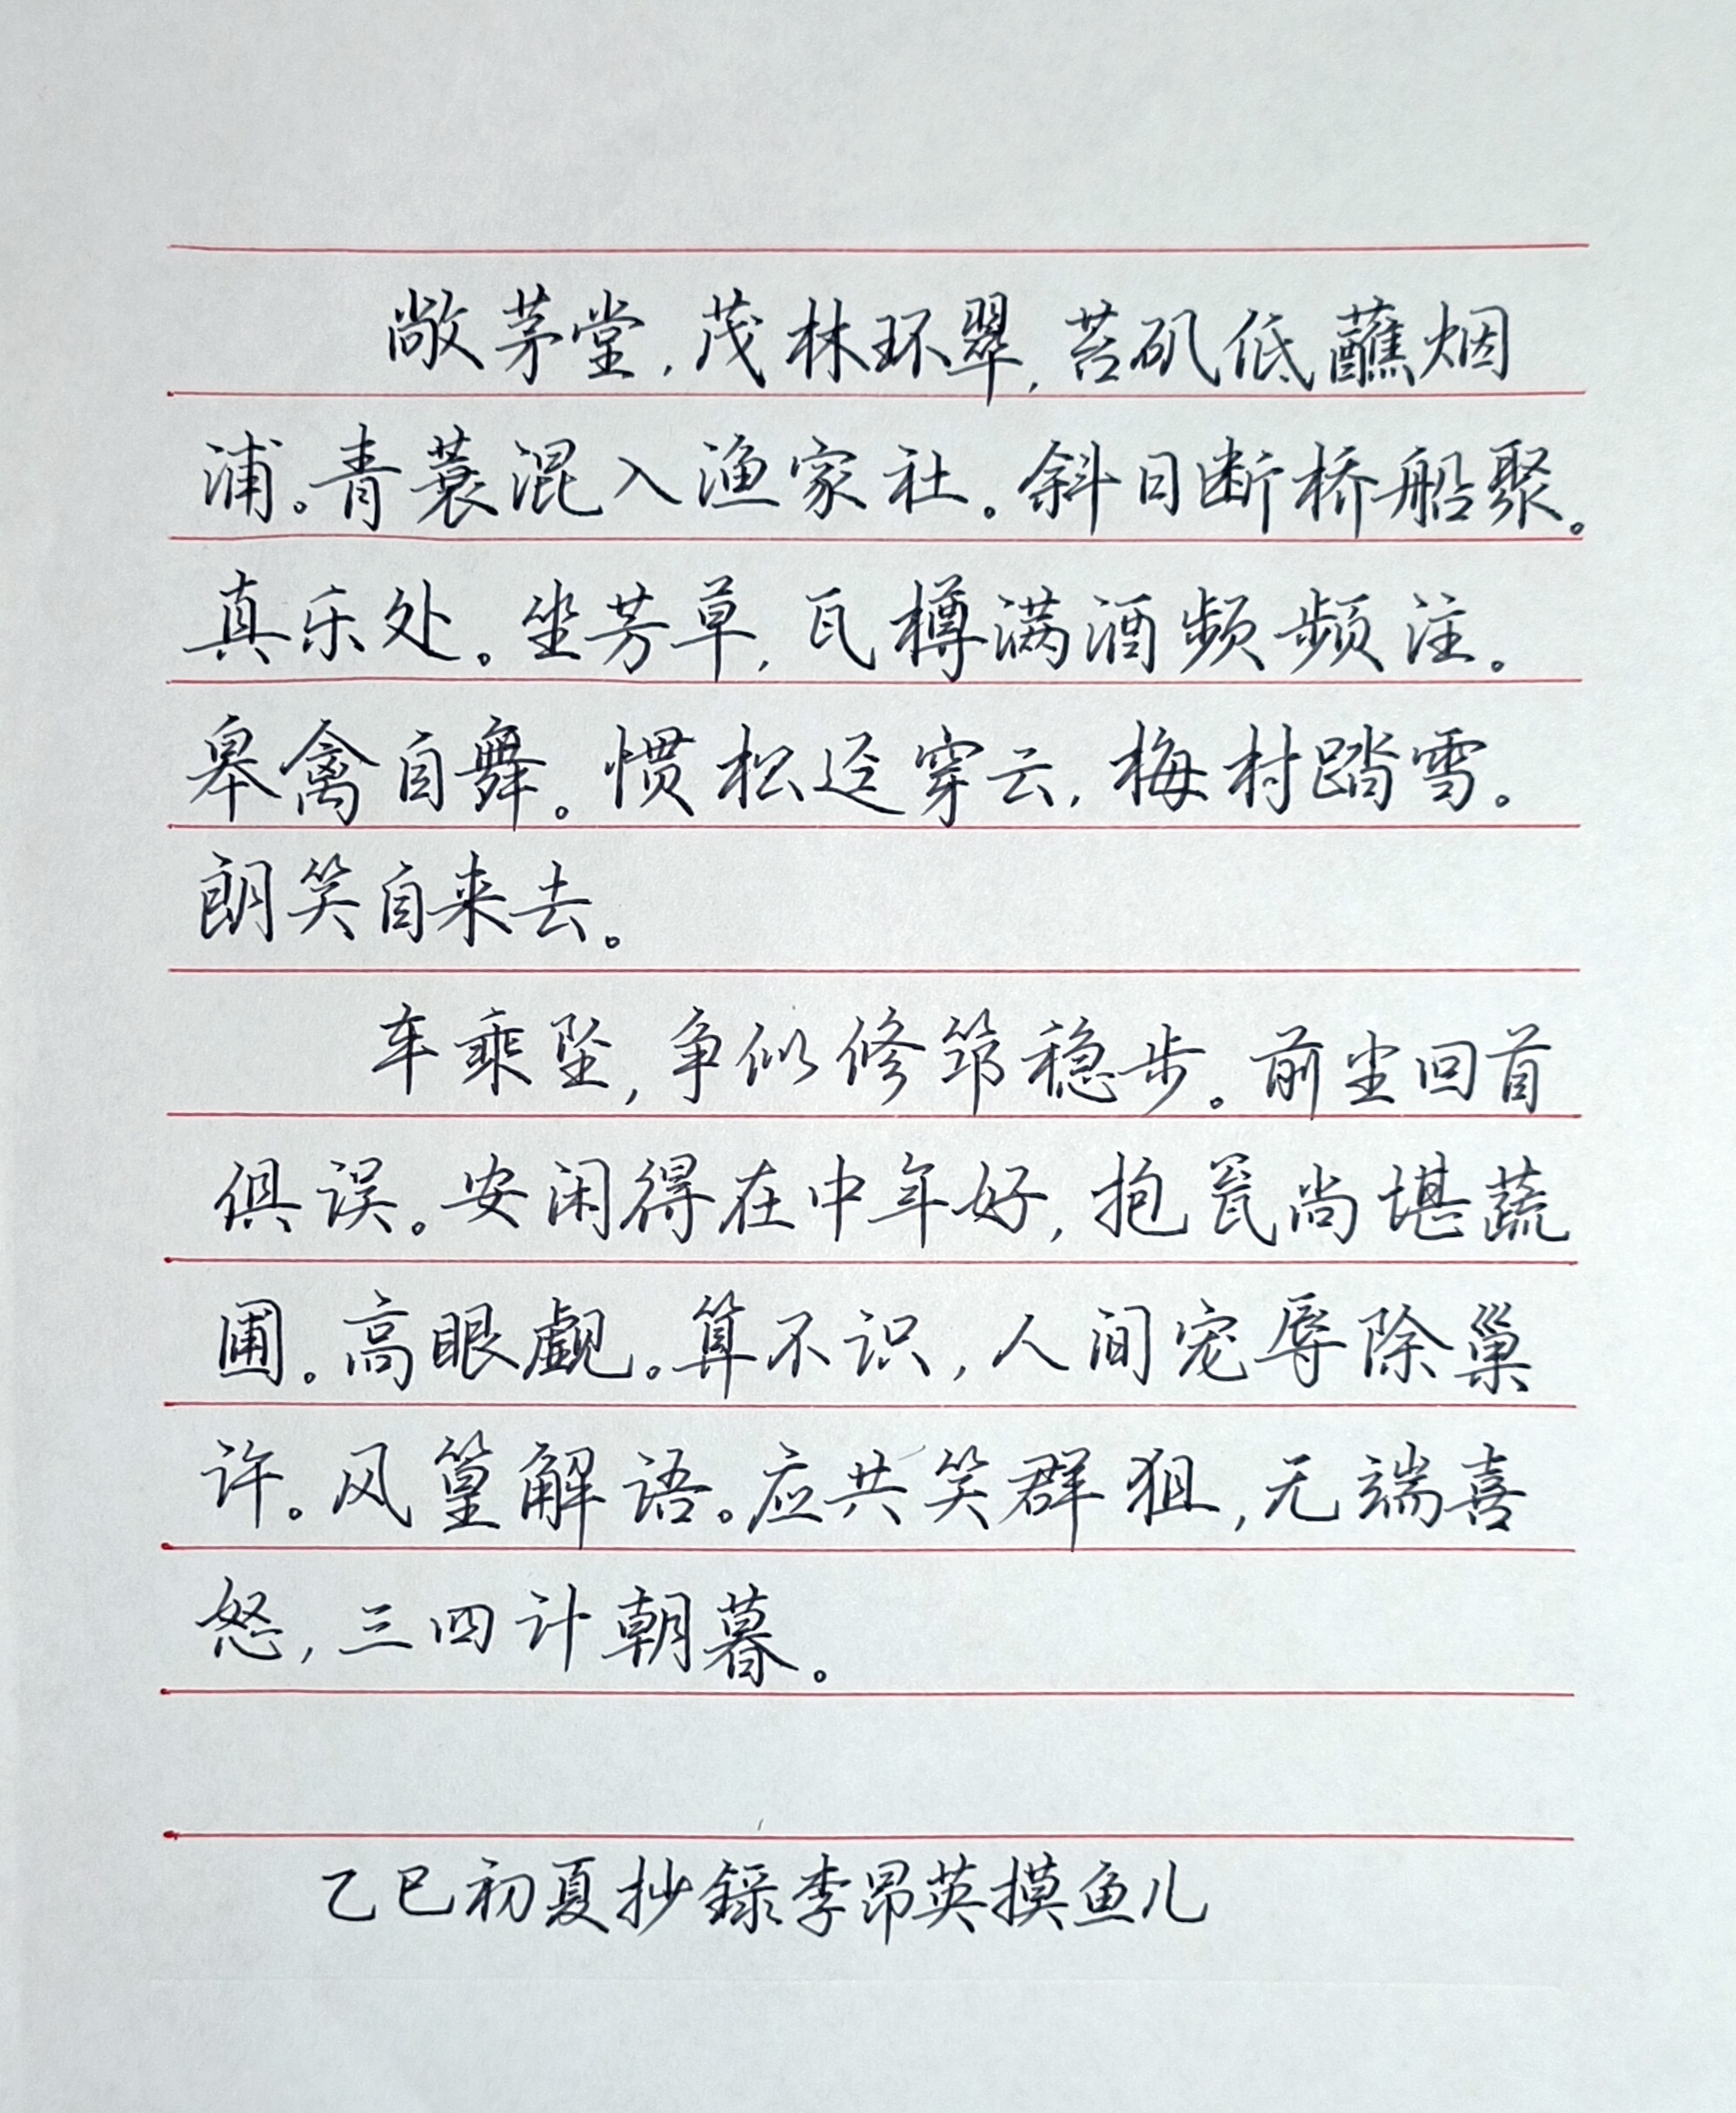 敞茅堂,茂林环翠,苔矶低蘸烟
浦。青蓑混入渔家社。斜日断桥船聚。
真乐处。坐芳草,瓦樽满酒频频注。
皋禽自舞。惯松迳穿云,梅村踏雪。
朗笑自来去。
车乘坠,争似修筇稳步。前尘回首
俱误。安闲得在中年好,抱瓮尚堪蔬
圃。高眼觑。算不识,人间宠辱除巢
许。风篁解语。应共笑群狙,无端喜
怒,三四计朝暮。
乙巳初夏抄録李昂英摸鱼儿